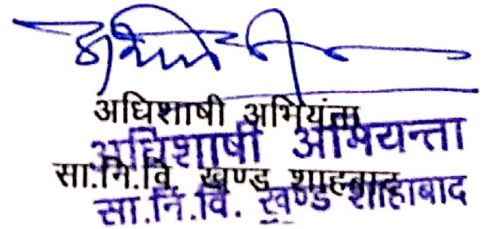 अधिशाषी अभियंता
अधिशाषी अभियन्ता
सा.नि.वि. खण्ड शाहबाद
सा.नि.वि. खण्ड शाहाबाद